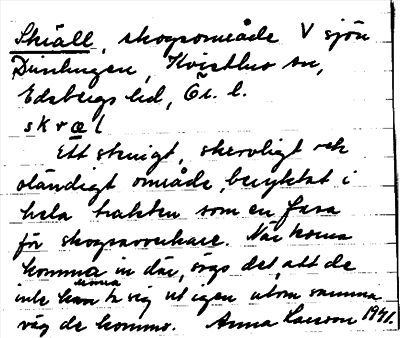 Skiäll, skogsområde V sjön
Dunlungen, Kvistbro sn,
Edsbergs hd, Ör. l.
skræl
Ett stenigt, skrovligt och
oländigt område, beryktat i
hela trakten som en fasa
för skogsarbetare. När korna
komma in där, sägs det, att de
inte kunna ta sig ut igen utom samma
väg de kommo. Anna Larsson 1941.